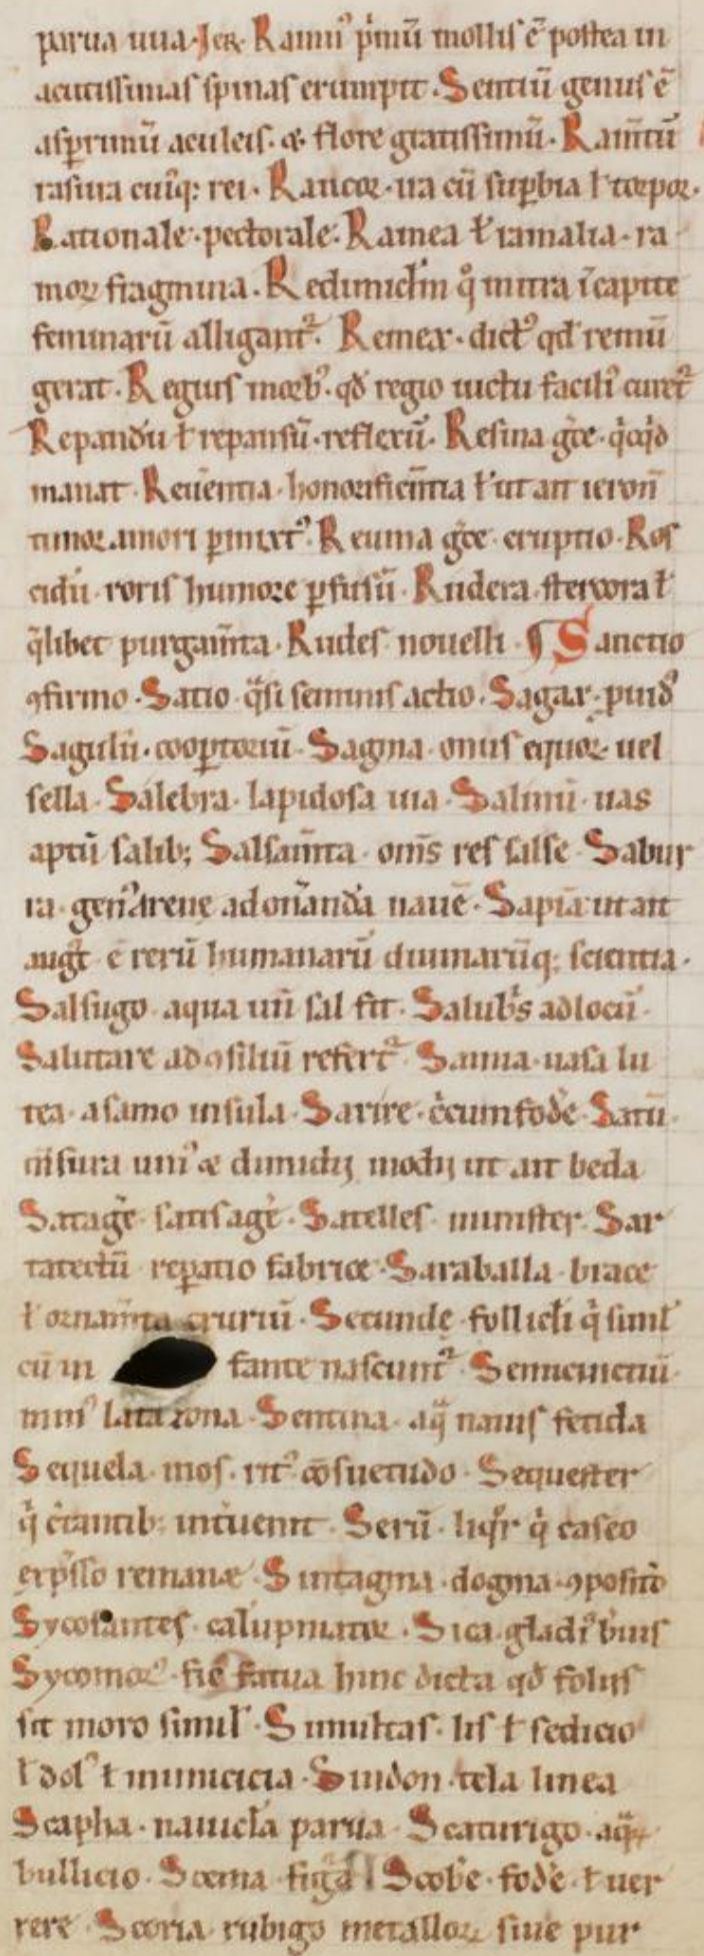 parua uua. Jer. Rāmꝰ p̄mū mollis ē postea in
acutissimas spinas erumpit. Sentiū genus ē
asp̄rimū aculeis. & flore gratissimū. Ram̄tū
rasura cuiꝰq; rei. Rancor. ira cū suꝑbia ł torpor.
Rationale. pectorale. Ramea ł ramalia. ra
moꝝ fragmina. Redimicl̄m q̊ mitra ī capite
feminarū alligant᷑. Remex. dictꝰ qđ remū
gerat. Regius morbꝰ. qđ regio uictu faciliꝰ curet᷑
Repandū ł repansū. reflexū. Resina gr̄ce. q̇cq̇d
manat. Reuēentia. honorificēntia ł ut ait ieron̄
timor amori ꝑmixtꝰ. Reuma gr̄ce. eruptio. Ros
cidū. roris humore ꝑfusū. Rudera. stercora ł
q̄libet purgam̄ta. Rudes nouelli. ¶ Sanctio
ꝯfirmo. Satio. q̄si seminis actio. Sagax. ꝓuidꝰ
Sagulū. cooptoriū. Sagma. onus equoꝝ. uel
sella. Salebra. lapidosa uia. Salinū. uas
aptū salib; Salsam̄ta. om̄s res salse. Sabur
ra. genꝰ arene ad on̄anda nauē. Sapīa. ut ait
augꝰt ē rerū humanarū diuinarūq; scientia.
Salsugo. aqua un̄ sal fit. Salubꝰs ad locū.
Salutare ad ꝯsiliū refert᷑. Samia. uasa lu
tea. a samo insula. Sarire. c̄cumfode. Satū.
m̄sura uniꝰ & dimidij modij ut ait beda
Satage. satis age. Satelles. minister. Sar
tatectū. reꝑatio fabrice. Saraballa. brace
ł ornam̄ta crurium. Secunde. follicl̄i q̇ simł
cū in fante nascunt᷑. Semicinctiū.
minꝰ lata zona. Sentina. aq̄ nauis fetida
Sequela. mos. ritꝰ ꝯsuetudo. Sequester
q̇ c̄tantib; int̄uenit. Serū. liqr̄ q̇ caseo
exp̄sso remanet. Sintagma. dogma. ꝯpositō
Sycofantes. calūpniator. Sica. gladiꝰ bꝰuis
Sycomorꝰ. ficꝰ fatua hinc dicta qđ foliis
sit moro simił. Simultas. lis ł sedicio
ł dolꝰ ł inimicicia. Sindon. tela linea
Scapha. nauicl̄a parua. Scaturigo. aq̄ꝝ
bullicio. Scema. figᷓa. Scobe. fode. ł uer
rere. Scoria. rubigo metalloꝝ siue pur